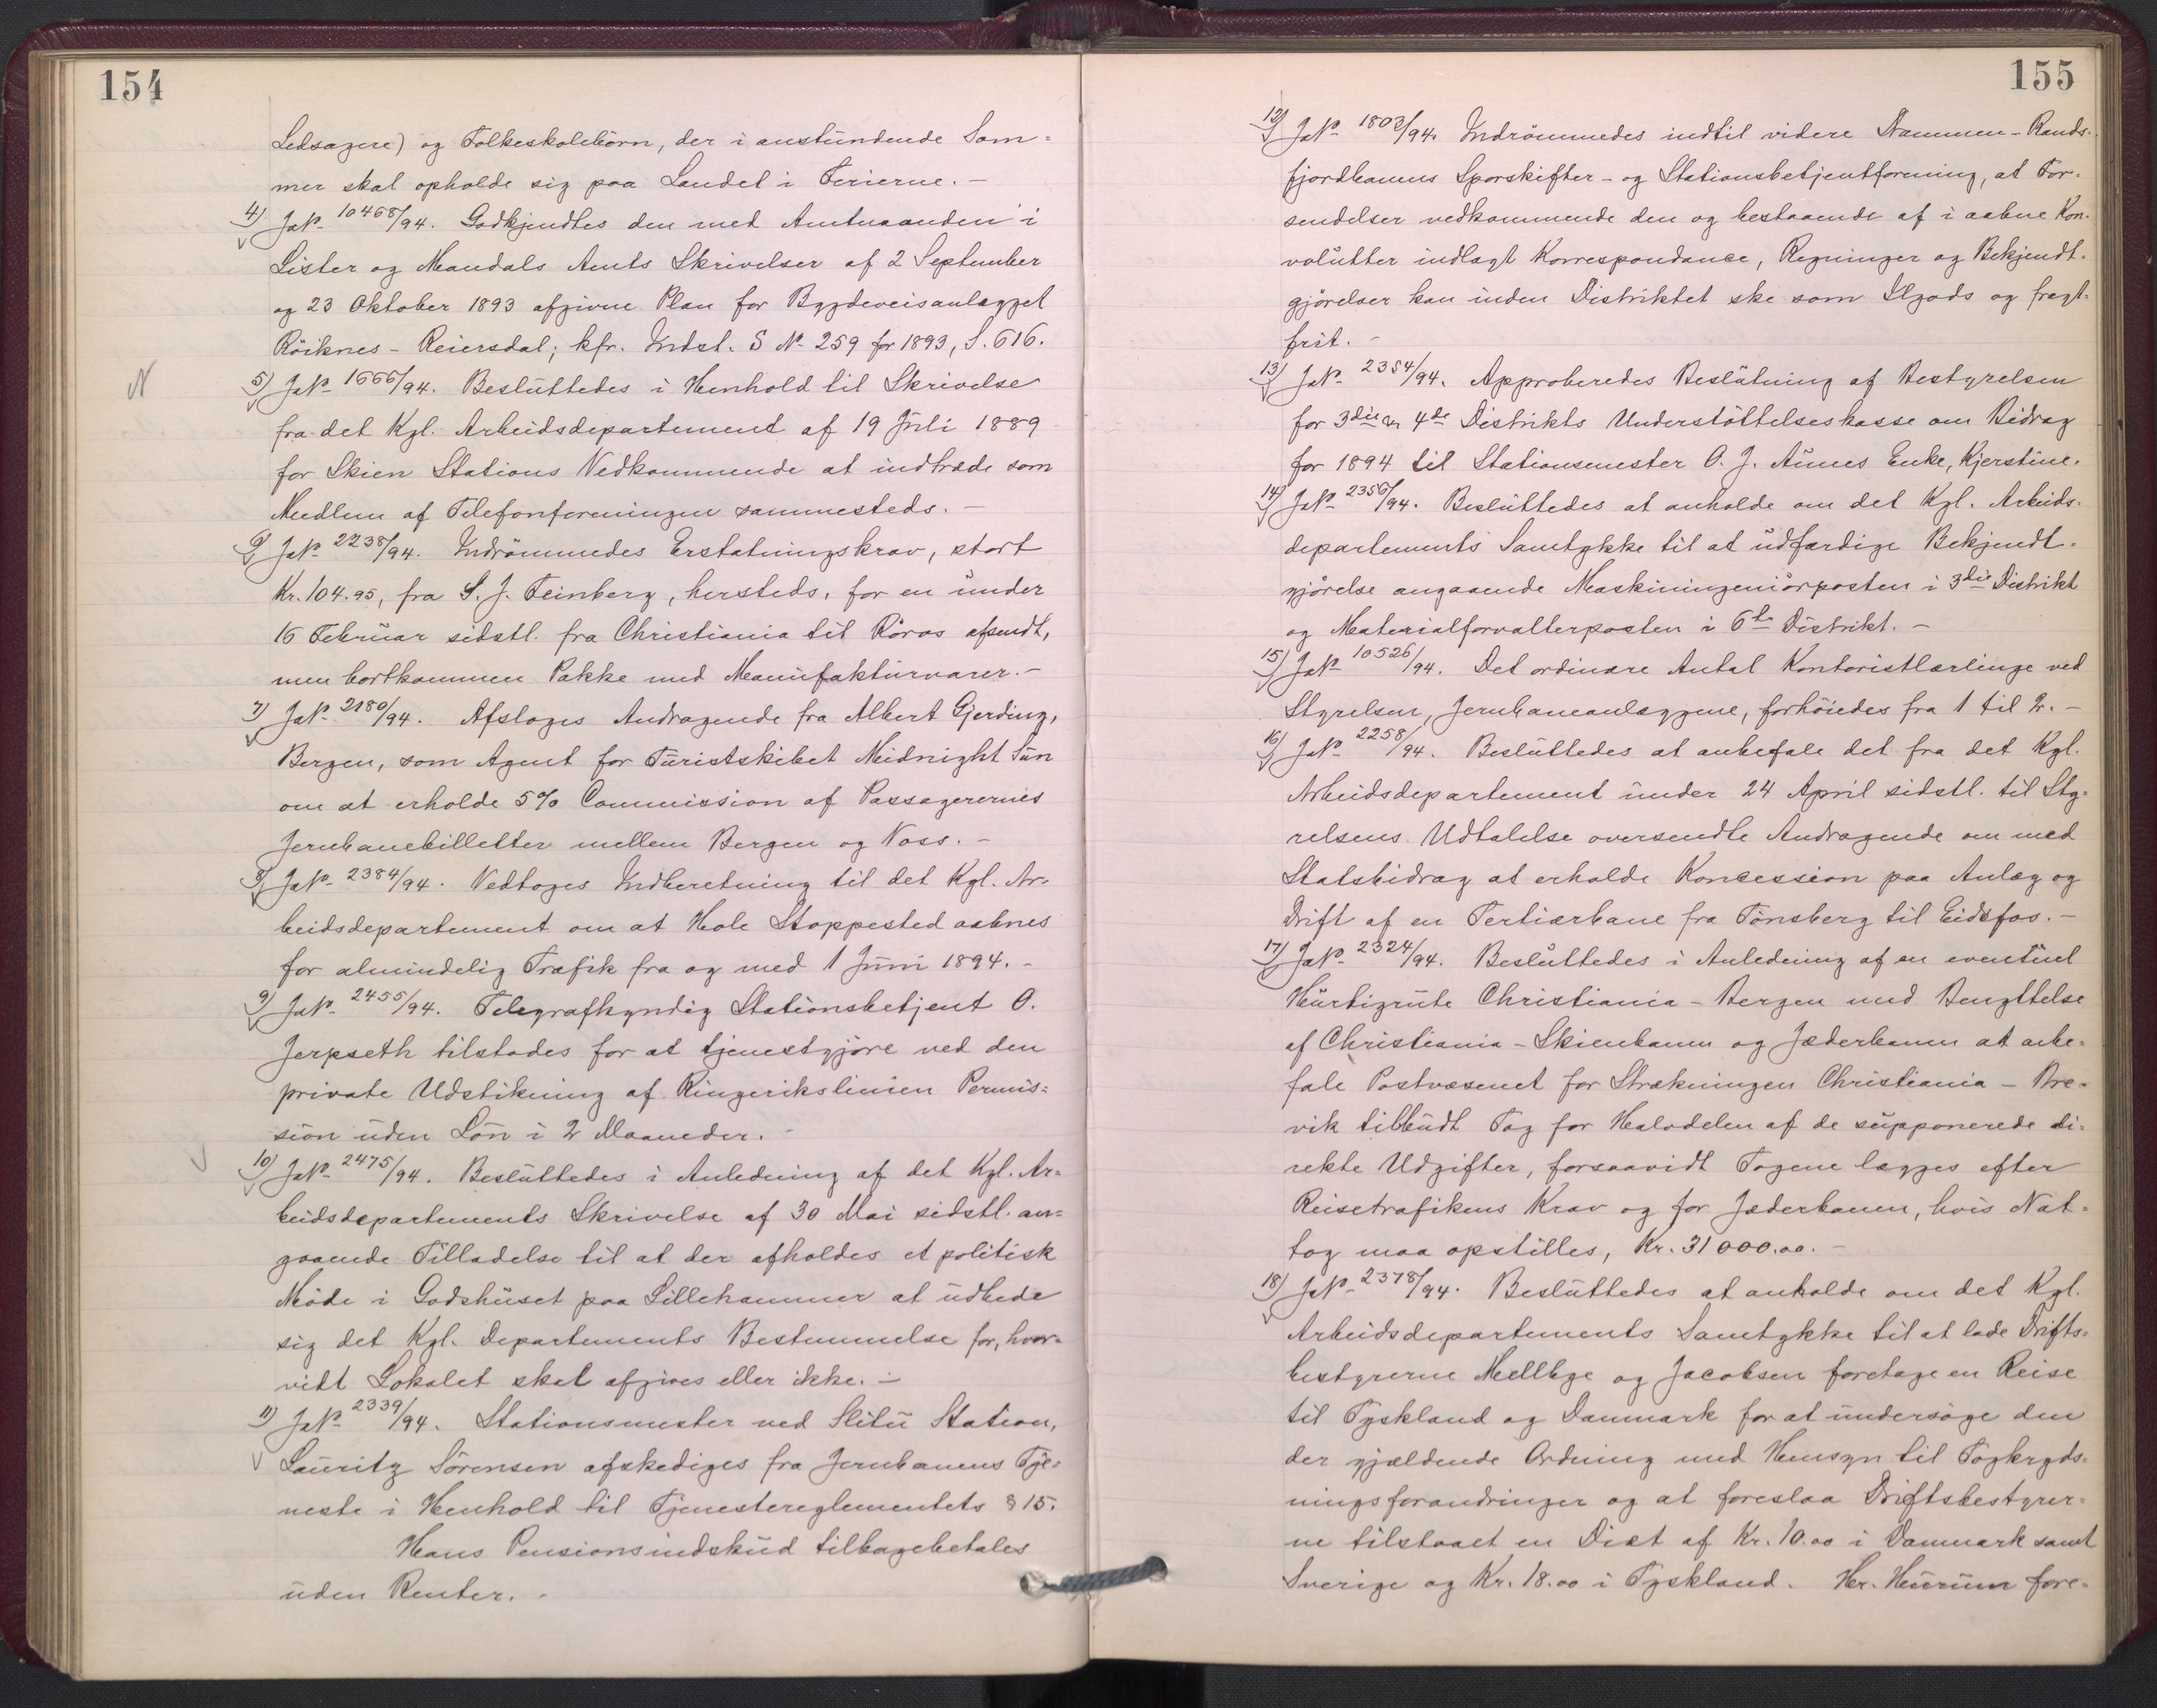 154
Ledsagere) og Folkeskolebörn, der i anstundende Som=
mer skal opholde sig paa Landet i Ferierne. –
4) J№ 10468/94. Godkjendtes den med Amtmanden i
Lister og Mandals Amts Skrivelser af 2 September
og 23 Oktober 1893 afgivne Plan for Bygdeveisanlægget
Röiknes – Reiersdal; kfr. Indst. S № 259 for 1893, S. 616.
N
5) J№ 1666/94. Besluttedes i Henhold til Skrivelse
fra det Kgl. Arbeidsdepartement af 19 Juli 1889
for Skien Stations Vedkommende at indtræde som
Medlem af Telefonforeningen sammesteds. –
6) J№ 2238/94. Indrömmedes Erstatningskrav, stort
Kr. 104.95, fra S. J. Feinberg, hersteds, for en under
16 Februar sidstl. fra Christiania til Röros afsendt,
men bortkommen Pakke med Manufakturvarer. –
7) J№ 2180/94. Afsloges Andragende fra Albert Gjerding,
Bergen, som Agent for Turistskibet Midnight Sun
om at erholde 5% Commission af Passagerernes
Jernbanebilletter mellem Bergen og Voss. –
8) J№ 2384/94. Vedtoges Indberetning til det Kgl. Ar-
beidsdepartement om at Hole Stoppested aabnes
for almindelig Trafik fra og med 1 Juni 1894. –
9) J№ 2455/94. Telegrafkyndig Stationsbetjent O.
Jerpseth tilstodes for at tjenestgjöre ved den
private Udstikning af Ringerikslinien Permis=
sion uden Lön i 2 Maaneder. –
10) J№ 2475/94. Besluttedes i Anledning af det Kgl. Ar=
beidsdepartements Skrivelse af 30 Mai sidstl. an=
gaaende Tilladelse til at der afholdes et politisk
Möde i Godshuset paa Lillehammer at udbede
sig det Kgl. Departements Bestemmelse for, hvor=
vidt Lokalet skal afgives eller ikke. –
11) J№ 2339/94. Stationsmester ved Slitu Station,
Lauritz Sörensen afskediges fra Jernbanens Tje=
neste i Henhold til Tjenestereglementets § 15.
Hans Pensionsindskud tilbagebetales
uden Renter. –
155
12) J№ 1803/94. Indrömmedes indtil videre Drammen-Rands-
fjordbanens Sporskifter- og Stationsbetjentforening, at For-
sendelser vedkommende den og bestaaende af i aabne Kon-
volutter indlagt Korrespondance, Regninger og Bekjendt-
gjörelser kan inden Distriktet ske som Ilgods og fragt-
frit. –
13) J№ 2354/94. Approberedes Beslutning af Bestyrelsen
for 3die og 4de Distrikts Understöttelseskasse om Bidrag
for 1894 til Stationsmester O. J. Aunes Enke, Kjerstine.
14) J№ 2356/94. Besluttedes at anholde om det Kgl. Arbeids-
departements Samtykke til at udfærdige Bekjendt-
gjörelse angaaende Maskiningeniörposten i 3die Distrikt
og Materialforvalterposten i 6te Distrikt. –
15) J№ 10526/94. Det ordinære Antal Kontoristlærlinge ved
Styrelsen, Jernbaneanlæggene, forhöiedes fra 1 til 2. –
16) J№ 2258/94. Besluttedes at anbefale det fra det Kgl.
Arbeidsdepartement under 24 April sidstl. til Sty-
relsens Udtalelse oversendte Andragende om med
Statsbidrag at erholde Koncession paa Anlæg og
Drift af en Tertiærbane fra Tönsberg til Eidsfos. –
17) J№ 2324/94. Besluttedes i Anledning af en eventuel
Hurtigrute Christiania – Bergen med Benyttelse
af Christiania – Skienbanen og Jæderbanen at anbe-
fale Postvæsenet for Strækningen Christiania – Bre-
vik tilbudt Tog for Halvdelen af de supponerede di-
rekte Udgifter, forsaavidt Togene lægges efter
Reisetrafikens Krav og for Jæderbanen, hvis Nat-
tog maa opstilles, Kr. 31000.00. –
18) J№ 2378/94. Besluttedes at anholde om det Kgl.
Arbeidsdepartements Samtykke til at lade Drifts-
bestyrerne Mellbye og Jacobsen foretage en Reise
til Tyskland og Danmark for at undersöge den
der gjældende Ordning med Hensyn til Togkryds-
ningsforandringer og at foreslaa Driftsbestyrer-
ne tilstaaet en Diæt af Kr. 10.00 i Danmark samt
Sverige og Kr. 18.00 i Tyskland. Hr. Heurum fore-